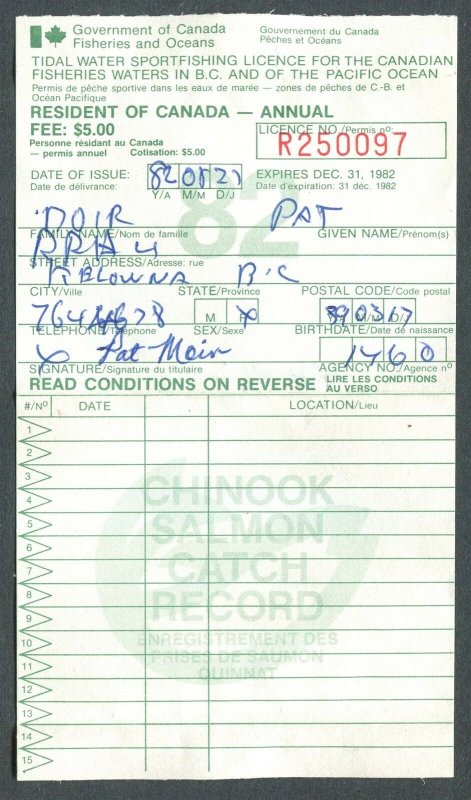 Government of Canada Gouvernement du Canada
Fisheries and Oceans Pêches et Océans
TIDAL WATER SPORTFISHING LICENCE FOR THE CANADIAN
FISHERIES WATERS IN B.C. AND OF THE PACIFIC OCEAN
Permis de pêche sportive dans les eaux de marée — zones de pêches de C.-B. et
Océan Pacifique
RESIDENT OF CANADA — ANNUAL
FEE: $5.00 LICENCE NO./Permis nº:
Personne résidant au Canada
— permis annuel Cotisation: $5.00 R250097
DATE OF ISSUE: 82 08 21 EXPIRES DEC. 31, 1982
Date de délivrance: Y/A M/M D/J Date d'expiration: 31 déc. 1982
82
PAT
FAMILY NAME/Nom de famille GIVEN NAME/Prénom(s)
RR# 4
STREET ADDRESS/Adresse: rue
KELOWNA B.C
CITY/Ville STATE/Province POSTAL CODE/Code postal
764 M F X
TELEPHONE/Téléphone SEX/Sexe BIRTHDATE/Date de naissance
X Pat Moir 1460
SIGNATURE/Signature du titulaire AGENCY NO./Agence nº
READ CONDITIONS ON REVERSE LIRE LES CONDITIONS
AU VERSO
#/Nº DATE LOCATION/Lieu
1
2
3
4
5
6
7
8
9
10
11
12
13
14
15
CHINOOK
SALMON
CATCH
RECORD
ENREGISTREMENT DES
PRISES DE SAUMON
QUINNAT